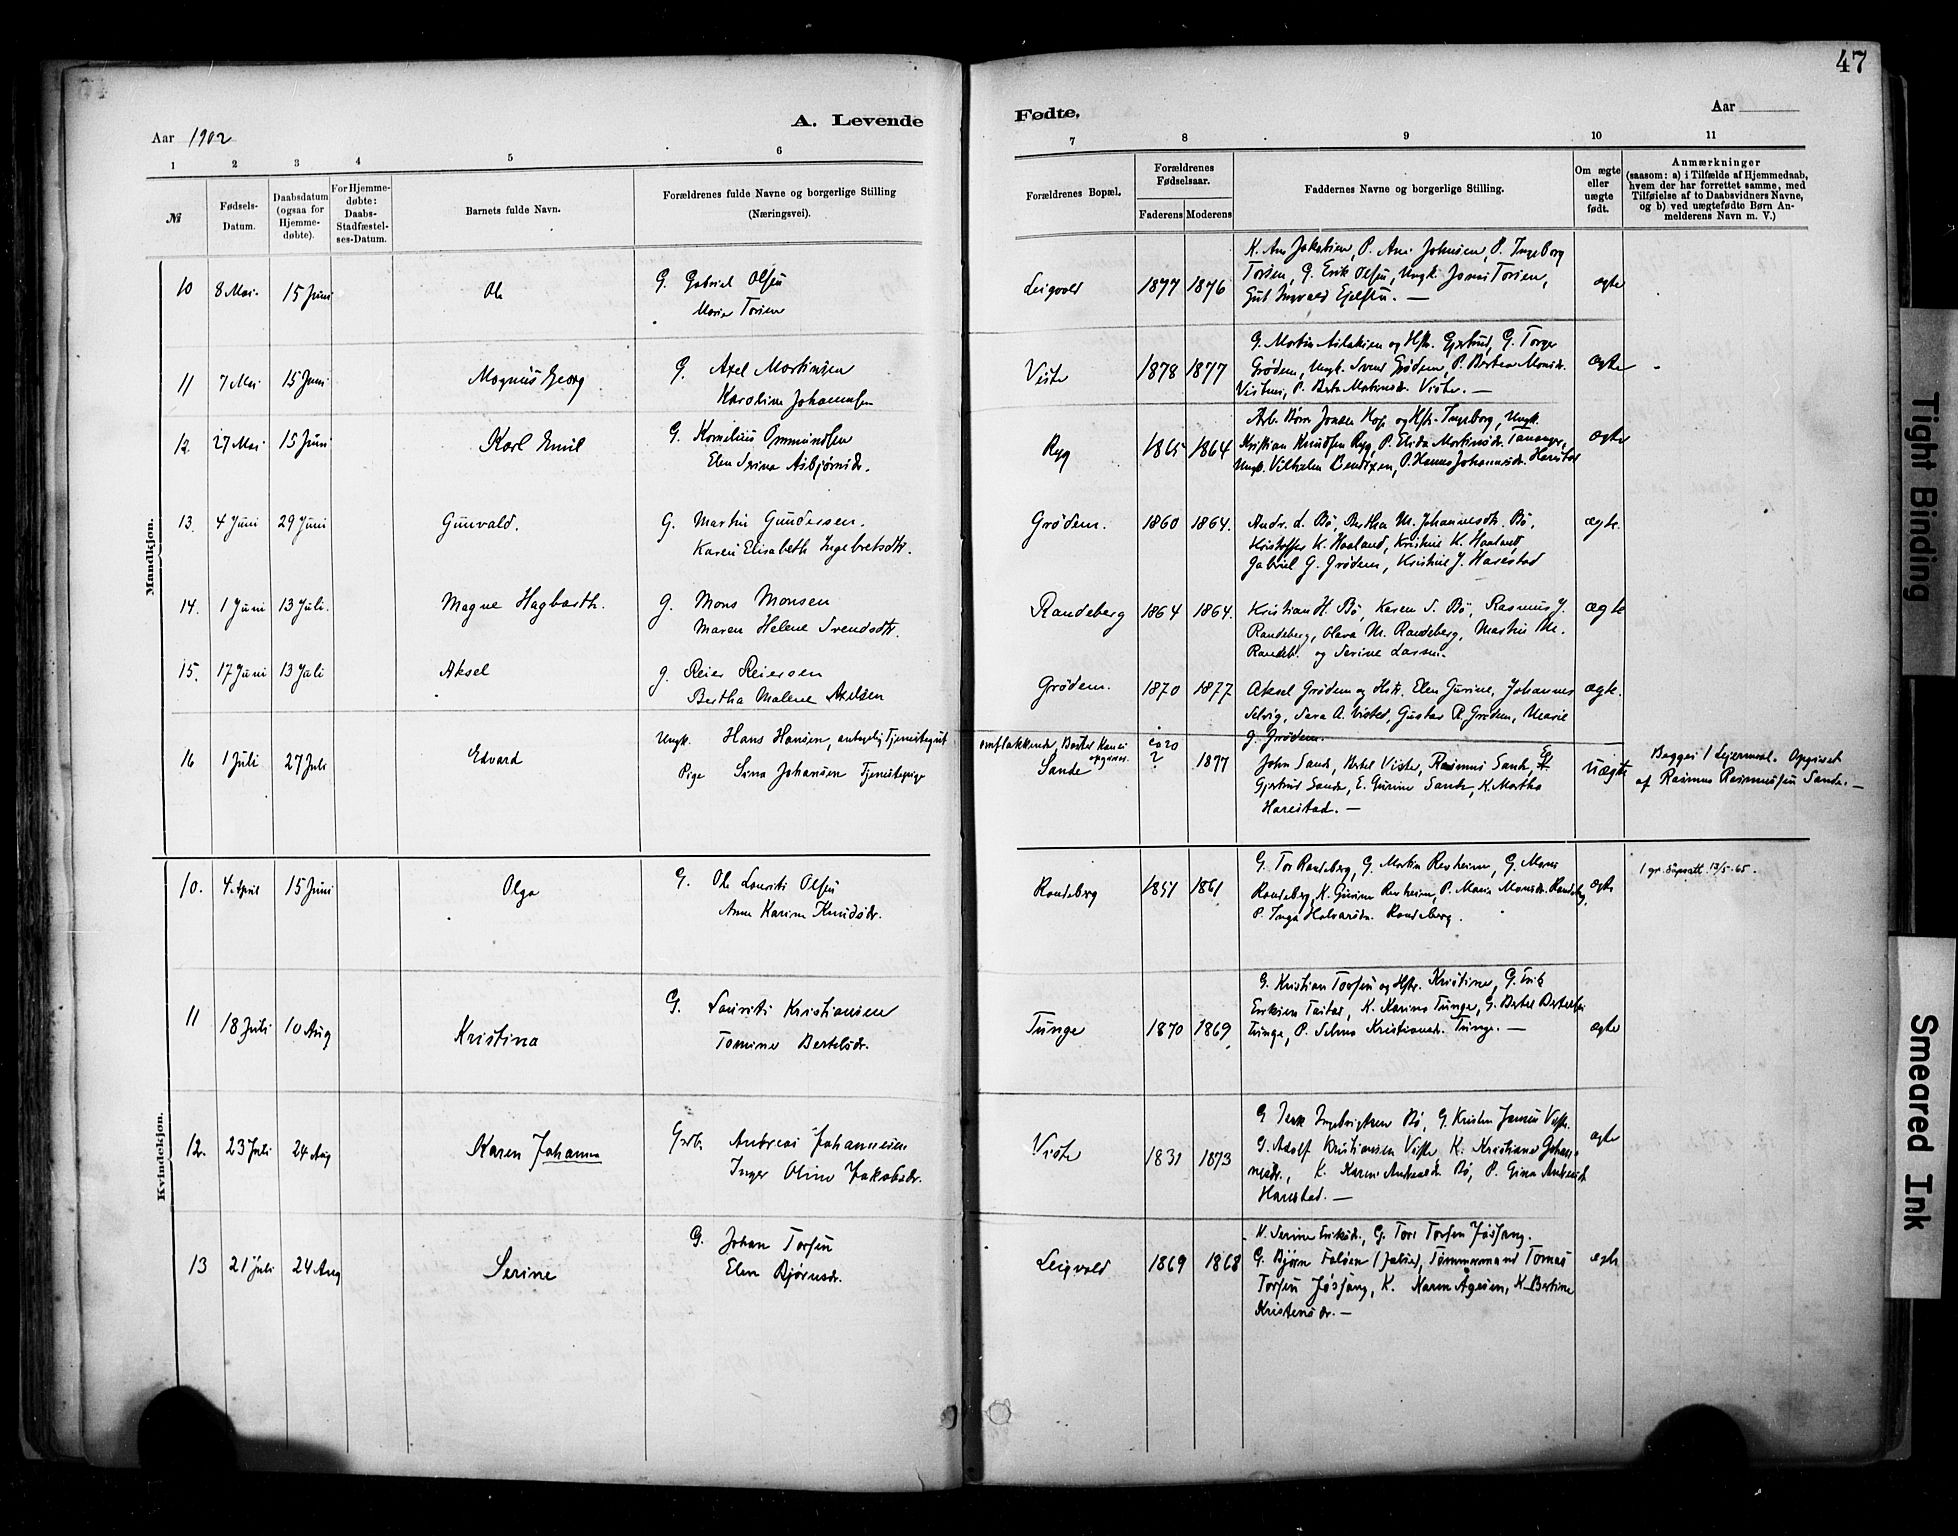 47
A. Levende
Fødte.
Aar 1902
Aar
1 2 3 4 5 6 7 8 9 10 11
№
Fødsels-Datum.
Daabsdatum (ogsaa for Hjemme-døbte).
For Hjemme-døbte: Daabs-Stadfæstel-ses-Datum.
Barnets fulde Navn.
Forældrenes fulde Navne og borgerlige Stilling
(Næringsvei).
Forældrenes Bopæl.
Forældrenes Fødselsaar.
Faderens Moderens
Faddernes Navne og borgerlige Stilling.
Om ægte eller uægte født.
Anmærkninger
(saasom: a) i Tilfælde af Hjemmedaab,
hvem der har forrettet samme, med
Tilføielse af to Daabsvidners Navne,
og b) ved uægtefødte Børn An-
melderens Navn m. V.)
Mandkjøn.
10 8 Mai. 15 Juni Ole G. Gabriel Olsen
Maria Torsen
Leigvold 1877 1876
K. Ane Jakobsen, P. Ane Johnsen, P. Ingeborg
Torsen, G. Erik Olsen, Ungk. Jonas Torsen,
Gut Ingvald
ægte
11 7 Mai 15 Juni Magnus Georg G. Axel Martinsen
Karoline Johannesen
Viste 1878 1877
G. Martin Aslaksen og Hstr. Gjertrud, G. Torger
Grødem, Ungk. Svend Grødem, P. Bertea Monsdr.
P. Berta Martinsdr. Viste. —
ægte
12. 27 Mai 15 Juni Karl Emil G. Kornelius Ommundsen
Elen Serina Asbjørnsdr.
Ryg 1865 1864
Arb. Børre Jonsen og Hstr. Ingeborg, Ungk.
Kristian Knudsen Ryg, P. Elida Martinsdr. Tananger,
Ungk. Vilhelm Bendixen, P. Hanna Johannesdr. Harestad
ægte
13. 4 Juni 29 Juni Gunvald. G. Martin Gundersen.
Karen Elisabeth Ingebretsdtr.
Grødem. 1860 1864.
Andr. L. Bø, Bertha M. Johannesdtr. Bø,
Kristoffer K. Haaland, Kristine K. Haaland,
Gabriel G. Grødem, Kristine J. Harestad
ægte.
14. 1 Juni 13 Juli. Magne Hagbarth. g. Mons Monsen
Maren Helene Svendsdtr.
Randeberg 1864 1864.
Kristian H. Bø, Karen S. Bø, Rasmus J.
Randeberg, Olava M. Randeberg, Martin M.
Randeb. og Serine Larsen.
ægte
15. 17 Juni 13 Juli Aksel g. Reier Reiersen
Bertha Malene Axelsen
Grødem. 1870 1877
Aksel Grødem og Hstr. Elen Gurine, Johannes
Selvig, Sara A. Visted, Gustav R. Grødem, Marie
J. Grødem.
ægte.
16 1 Juli 27 Juli Edvard Ungk. Hans Hansen, antagelig Tjenestegut
Pige Sina Johansen Tjenestepige
omflakkende,
Sande ca 20 ? 1877
John Sande, Bertel Viste, Rasmus Sande
Gjertrud Sande, E. Gurine Sande, K. Martha
Harestad. —
uægte
Begges 1 Leiermaal. Opgivet
af Rasmus Rasmussen Sande. —
Kvindekjøn.
10. 4 April 15 Juni Olga G. Ole Lauritz Olsen
Anne Karine Knudsdr.
Randeberg 1851 1861
G. Tor Randeberg, G. Martin Revheim, G. Mons
Randeberg, K. Gurine Revheim, P. Maria Monsdr. Randeberg,
P. Inga Halvorsdr. Randeberg.
ægte
11 18 Juli 10 Aug Kristina G. Lauritz Kristiansen
Tomine Bertelsdr.
Tunge 1870 1869
G. Kristian Torsen og Hstr. Kristine, G. Erik
Eriksen K. Karina Tunge, G. Bertel Bertelsen
Tunge, P. Selma Kristiansdr. Tunge. —
ægte
12. 23 Juli 24 Aug Karen Johanna Gjrb. Andreas Johannesen
Inger Oline Jakobsdr.
Viste 1831 1873
G. Ingebrigtsen Bø, G. Kristen Jansen Viste.
G. Adolf Kristiansen Viste, K. Kristiane Johan-
nesdr., K. Karen Andreasdr. Bø, P. Gina Andreasdr.
Harestad. —
ægte
13 21 Juli 24 Aug Serine G. Johan Torsen
Elen Bjørnsdr.
Leigvold 1869 1868
K. Serine Eriksdr., G. Tore Torsen Jøsfang.
G. Bjørn Tømmermand Tomas
Torsen Jøsfang, K. Karen Agesen, K. Bertine
Kristensdr. —
ægte
Tight Binding
Smeared Ink